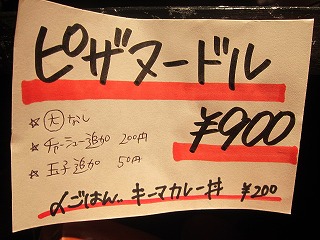 ピザヌードル
☆ 大 なし
☆ チャーシュー追加 200円
☆ 玉子追加 50円
¥900
〆ごはん.. キーマカレー丼 ¥200